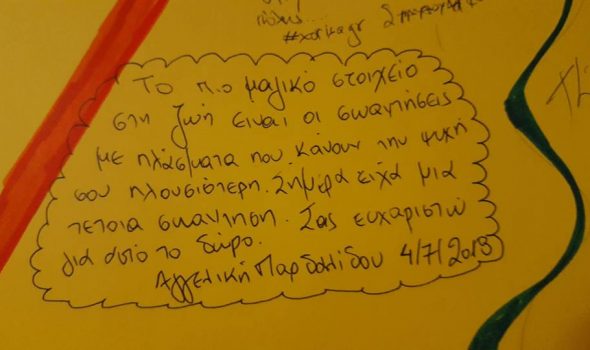 Το πιο μαγικό στοιχείο
στη ζωή είναι οι συναντήσεις
με πλάσματα που κάνουν την ψυχή
σου πλουσιότερη. Σήμερα είχα μια
τέτοια συνάντηση. Σας ευχαριστώ
για αυτό το δώρο.
Αγγελική Παρδαλίδου 4/7/2018